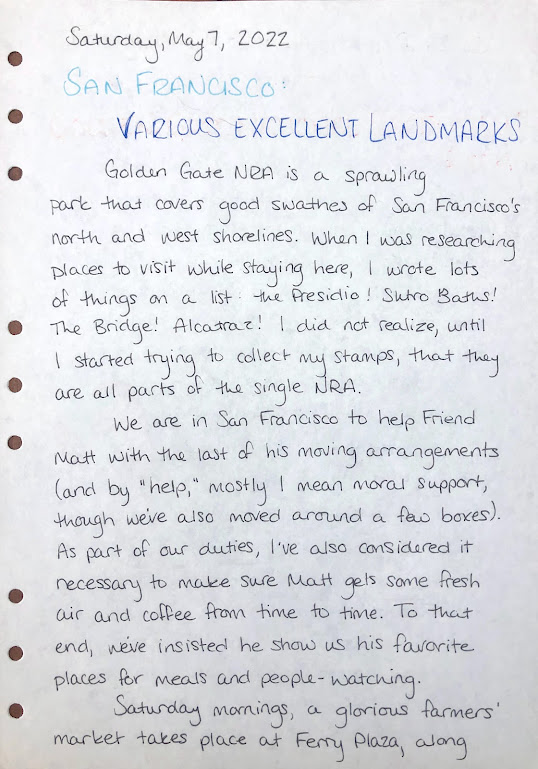 Saturday, May 7, 2022
SAN FRANCISCO:
VARIOUS EXCELLENT LANDMARKS
Golden Gate NRA is a sprawling
park that covers good swathes of San Francisco's
north and west shorelines. When I was researching
places to visit while staying here, I wrote lots
of things on a list: the Presidio! Sutro Baths!
The Bridge! Alcatraz! I did not realize, until
I started trying to collect my stamps, that they
are all parts of the single NRA.
We are in San Francisco to help Friend
Matt with the last of his moving arrangements
(and by "help," mostly I mean moral support,
though we've also moved around a few boxes).
As part of our duties, I've also considered it
necessary to make sure Matt gets some fresh
air and coffee from time to time. To that
end, we've insisted he show us his favorite
places for meals and people-watching.
Saturday mornings, a glorious farmers'
market takes place at Ferry Plaza, along